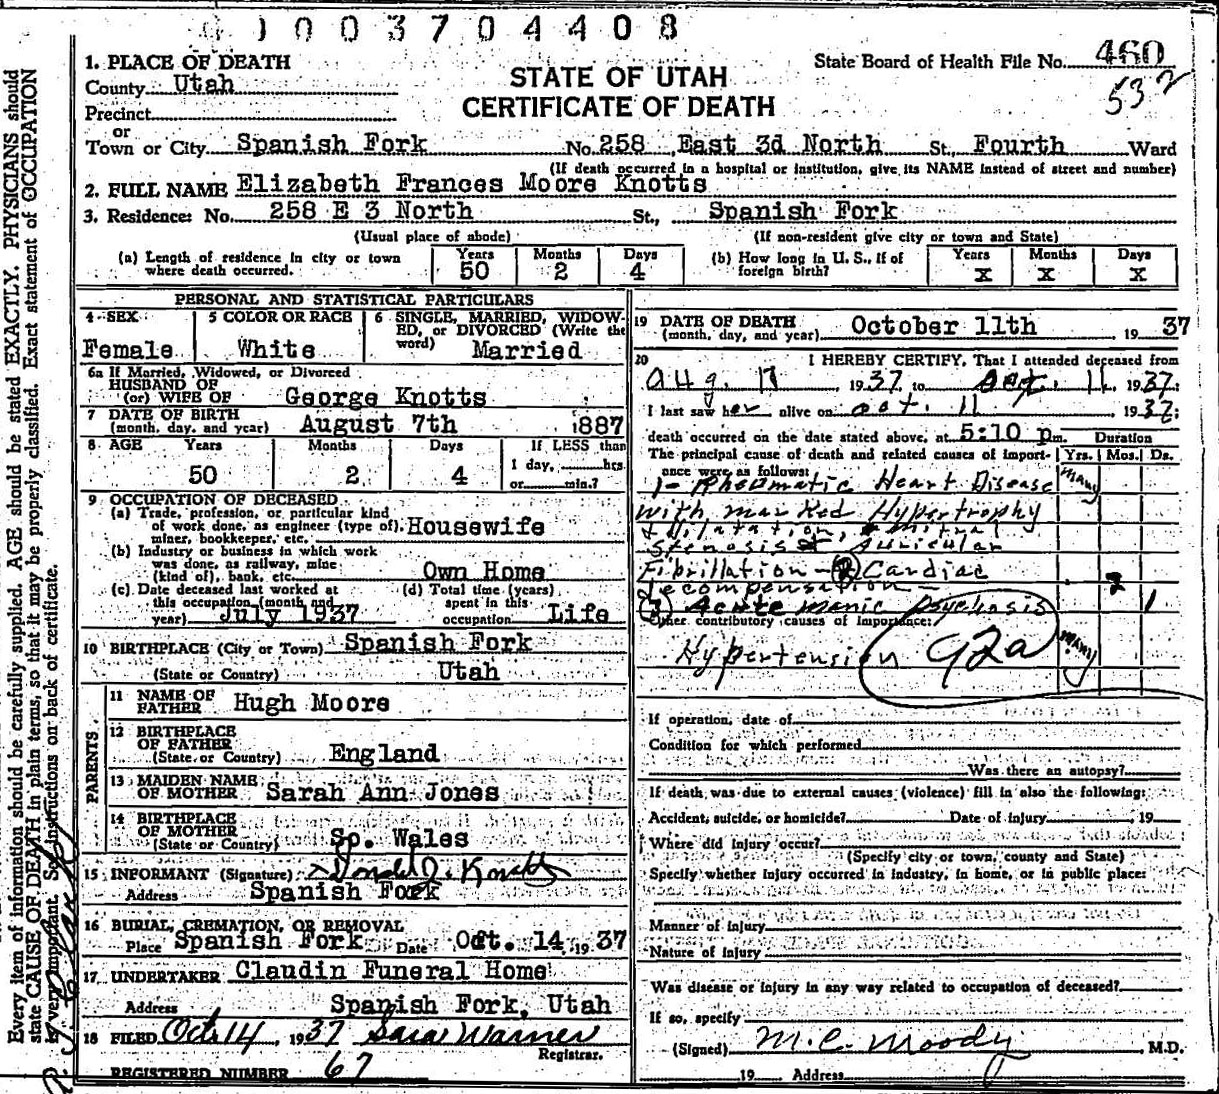 1003704408
1. PLACE OF DEATH
County Utah
STATE OF UTAH
CERTIFICATE OF DEATH
State Board of Health File No. 460
532
Precinct
or
Town or City Spanish Fork No. 258 East 3d North St, Fourth Ward
(If death occurred in a hospital or institution, give its NAME instead of street and number)
2. FULL NAME Elizabeth Frances Moore Knotts
3. Residence: No. 258 E 3 North St., Spanish Fork
(Usual place of abode) (If non-resident give city or town and State)
(a) Length of residence in city or town where death occurred. Years 50 Months 2 Days 4
(b) How long in U. S., if of foreign birth? Years X Months X Days X
PERSONAL AND STATISTICAL PARTICULARS
4 SEX Female
5 COLOR OR RACE White
6 SINGLE, MARRIED, WIDOWED, or DIVORCED (Write the word) Married
6a If Married, Widowed, or Divorced
HUSBAND OF
(or) WIFE OF George Knotts
7 DATE OF BIRTH
(month, day, and year) August 7th 1887
8 AGE Years 50 Months 2 Days 4 If LESS than 1 day, hrs or min.?
9 OCCUPATION OF DECEASED
(a) Trade, profession, or particular kind
of work done, as engineer (type of), Housewife
miner, bookkeeper, etc.
(b) Industry or business in which work
was done, as railway, mine
(kind of), bank, etc. Own Home
(c) Date deceased last worked at
this occupation (month and
year) July 1937
(d) Total time (years)
spent in this
occupation Life
10 BIRTHPLACE (City or Town) Spanish Fork
(State or Country) Utah
PARENTS
11 NAME OF
FATHER Hugh Moore
12 BIRTHPLACE
OF FATHER
(State or Country) England
13 MAIDEN NAME
OF MOTHER Sarah Ann Jones
14 BIRTHPLACE
OF MOTHER
(State or Country) Sp. Wales
15 INFORMANT (Signature) Donald J. Knotts
Address Spanish Fork
16 BURIAL, CREMATION, OR REMOVAL
Place Spanish Fork Date Oct. 14, 1937
17 UNDERTAKER Claudin Funeral Home
Address Spanish Fork, Utah
18 FILED Oct. 14, 1937 Sara Warner
Registrar.
REGISTERED NUMBER 67
19 DATE OF DEATH
(month, day, and year) October 11th 1937
20 I HEREBY CERTIFY, That I attended deceased from
Aug. 17 1937 to Oct. 11 1937;
I last saw her alive on oct. 11 1937;
death occurred on the date stated above, at 5:10 p.m. Duration
The principal cause of death and related causes of import- Yrs. Mos. Ds.
ance were as follows:
1- Rheumatic Heart Disease many
with marked Hypertrophy
& Dilatation, Mitral
Stenosis & Auricular
Fibrillation - (2) Cardiac
Decompensation 2
(3) Acute Manic Psychosis 1
Other contributory causes of importance:
Hypertension 92a many
If operation, date of
Condition for which performed
Was there an autopsy?
If death was due to external causes (violence) fill in also the following:
Accident, suicide, or homicide? Date of injury 19
Where did injury occur?
(Specify city or town, county and State)
Specify whether injury occurred in industry, in home, or in public place:
Manner of injury
Nature of injury
Was disease or injury in any way related to occupation of deceased?
If so, specify
(Signed) M. C. Moody M.D.
19 Address
Every item of information should be carefully supplied. AGE should be stated EXACTLY. PHYSICIANS should
state CAUSE OF DEATH in plain terms, so that it may be properly classified. Exact statement of OCCUPATION
is very important. See instructions on back of certificate.